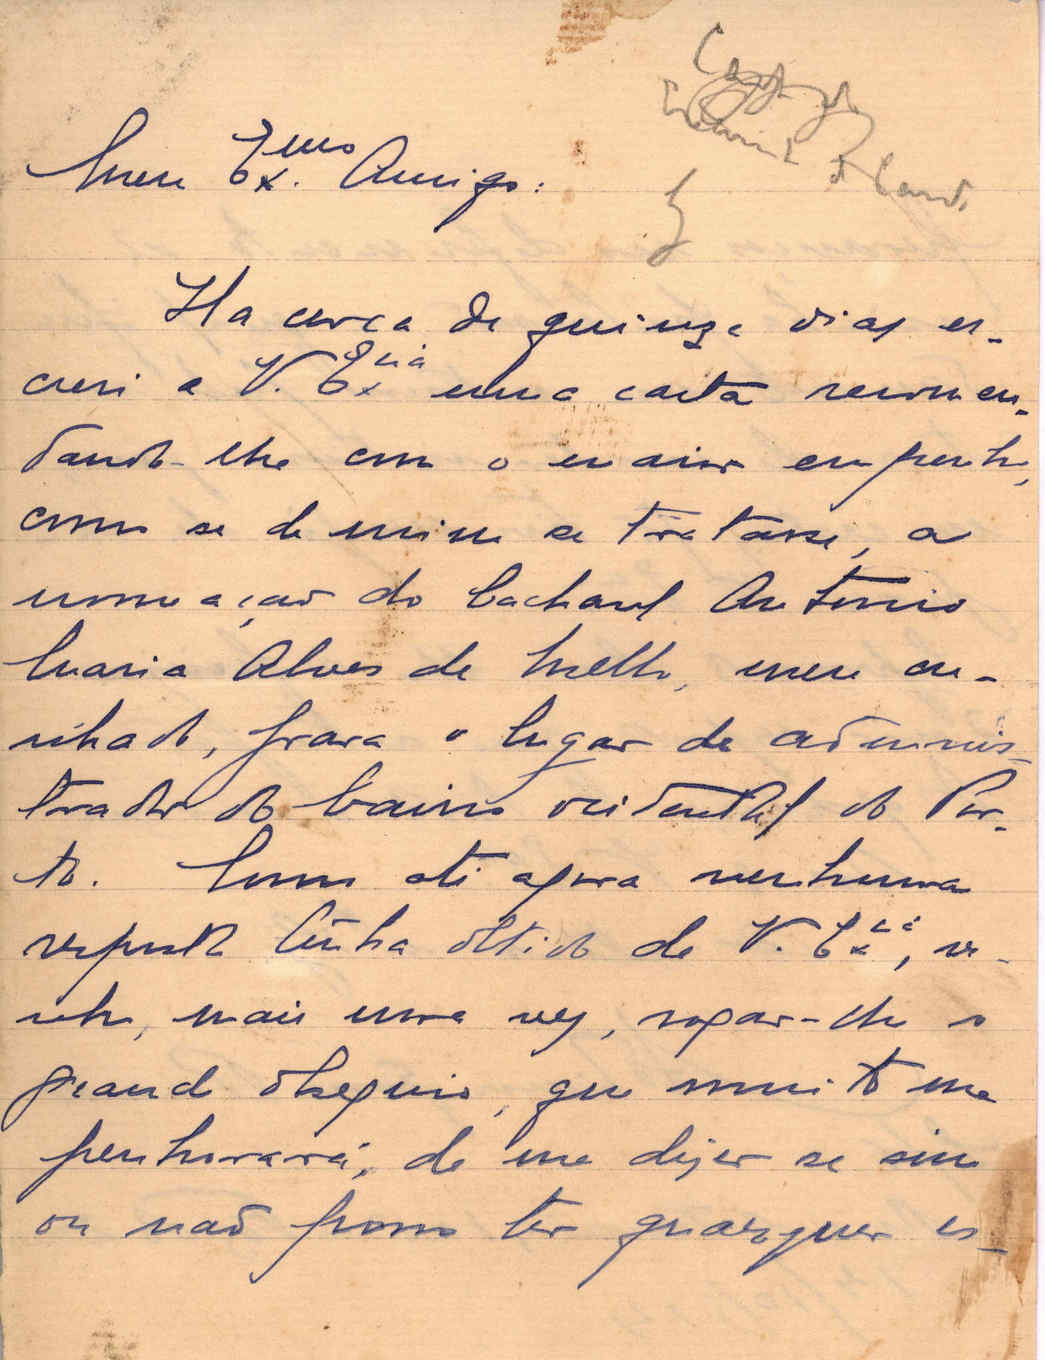 Meu Exmo Amigo:
Ha cerca de quinze dias es-
crevi a V. Excia uma carta recomen-
dando-lhe com o maior empenho,
como se de mim se tratasse, a
nomeação do bacharel Antonio
Maria Alves de Mello, meu cu-
nhado, para o lugar de adminis-
trador do bairro ocidental do Por-
to. Como até agora nenhuma
resposta tenha obtido de V. Excia, ve-
nho, mais uma vez, rogar-lhe o
grande obsequio, que muito me
penhorará, de me dizer se sim
ou não posso ter quaesquer es-